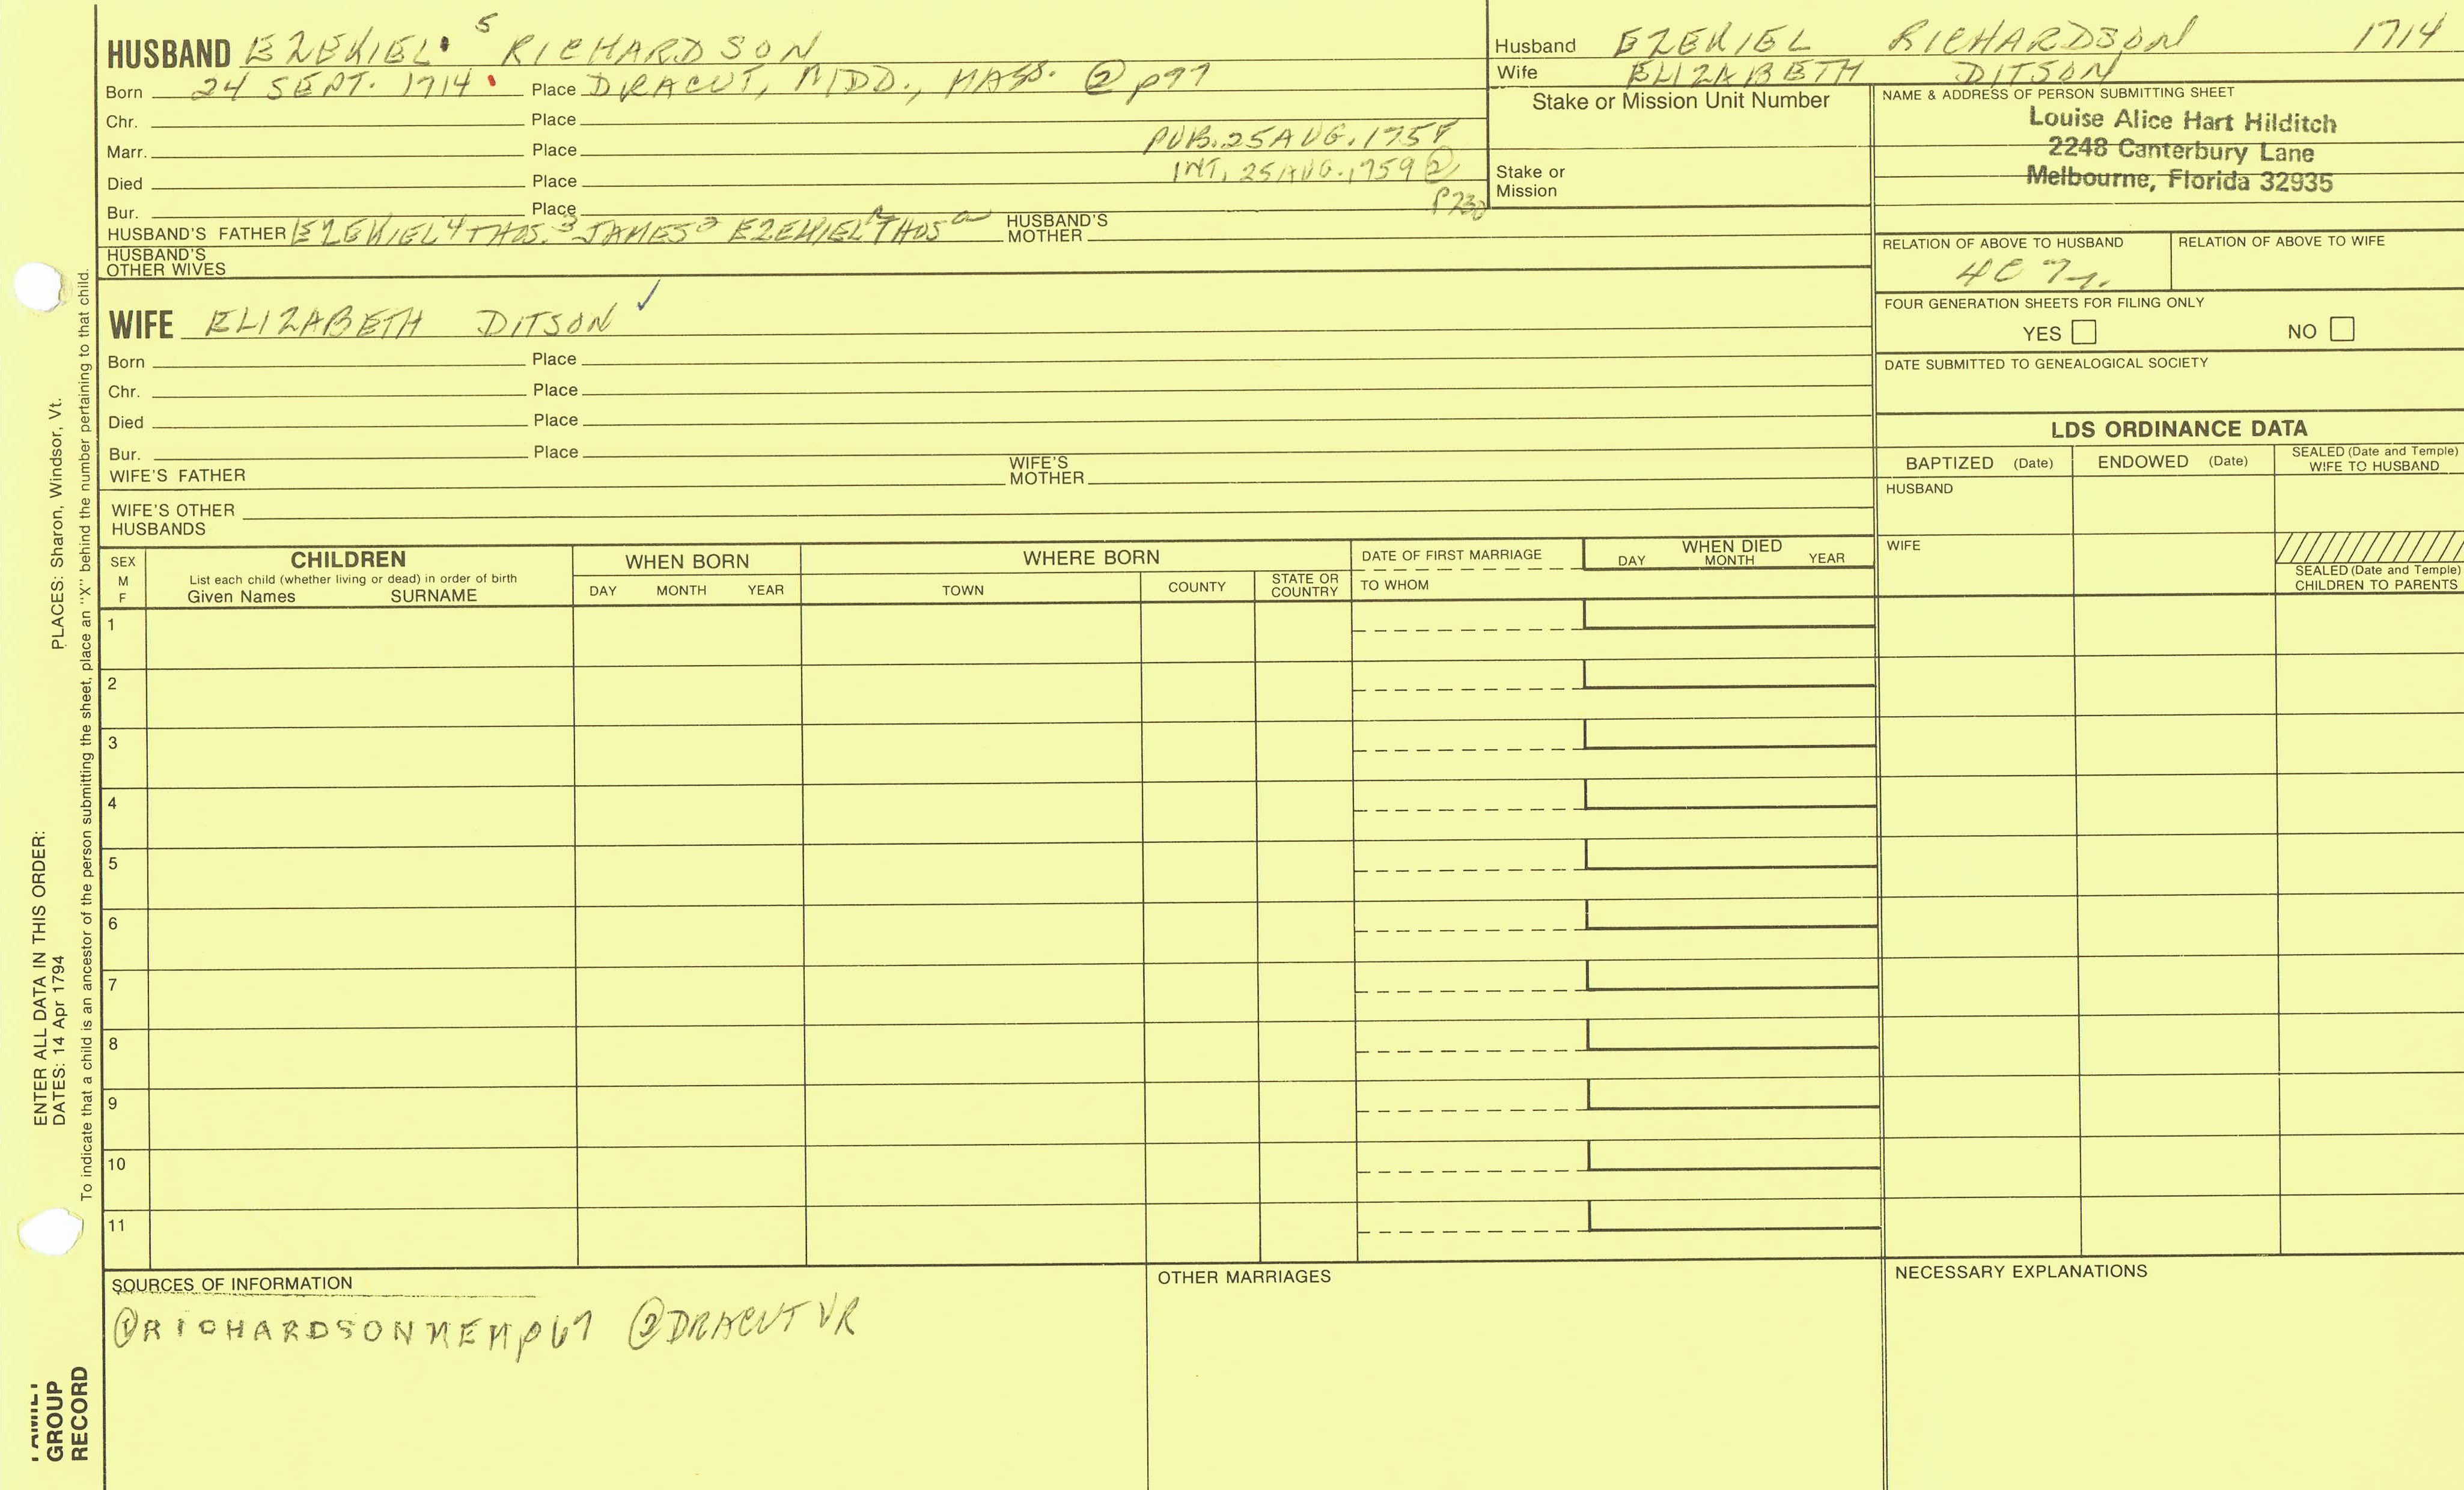 HUSBAND EZEKIEL 5 RICHARDSON
Born 24 SEPT. 1714 Place DRACUT, MIDD., MASS. ② p97
Chr. Place
Marr. Place PUB. 25 AUG. 1758
Died Place INT. 25 AUG. 1759 ②
Bur. Place P230
HUSBAND'S FATHER EZEKIEL 4 THOS. 3 JAMES EZEKIEL THOS HUSBAND'S MOTHER
HUSBAND'S OTHER WIVES
WIFE ELIZABETH DITSON ✓
Born Place
Chr. Place
Died Place
Bur. Place
WIFE'S FATHER WIFE'S MOTHER
WIFE'S OTHER HUSBANDS
Husband EZEKIEL RICHARDSON 1714
Wife ELIZABETH DITSON
Stake or Mission Unit Number
Stake or Mission
NAME & ADDRESS OF PERSON SUBMITTING SHEET
Louise Alice Hart Hilditch
2248 Canterbury Lane
Melbourne, Florida 32935
RELATION OF ABOVE TO HUSBAND RELATION OF ABOVE TO WIFE
4C 7r.
FOUR GENERATION SHEETS FOR FILING ONLY
YES NO
DATE SUBMITTED TO GENEALOGICAL SOCIETY
LDS ORDINANCE DATA
BAPTIZED (Date) ENDOWED (Date) SEALED (Date and Temple) WIFE TO HUSBAND
HUSBAND
WIFE
SEALED (Date and Temple)
CHILDREN TO PARENTS
SEX M F
CHILDREN
List each child (whether living or dead) in order of birth
Given Names SURNAME
WHEN BORN
DAY MONTH YEAR
WHERE BORN
TOWN COUNTY STATE OR COUNTRY
DATE OF FIRST MARRIAGE
TO WHOM
WHEN DIED
DAY MONTH YEAR
1
2
3
4
5
6
7
8
9
10
11
SOURCES OF INFORMATION
① RICHARDSON MEM p67 ② DRACUT VR
OTHER MARRIAGES
NECESSARY EXPLANATIONS
ENTER ALL DATA IN THIS ORDER:
DATES: 14 Apr 1794 PLACES: Sharon, Windsor, Vt.
To indicate that a child is an ancestor of the person submitting the sheet, place an "X" behind the number pertaining to that child.
FAMILY
GROUP
RECORD